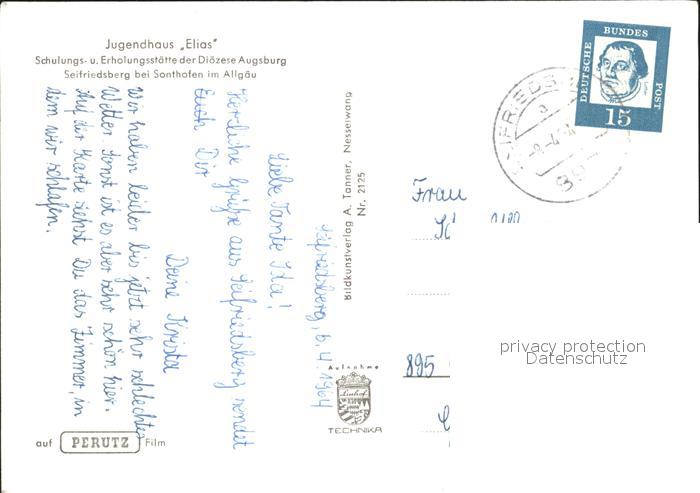 Jugendhaus „Elias"
Schulungs- u. Erholungsstätte der Diözese Augsburg
Seifriedsberg bei Sonthofen im Allgäu
Seifriedsberg, 6.4.1964
Liebe Tante Ida!
Herzliche Grüße aus Seifriedsberg sendet
Euch Dir
Deine Krista
Wir haben leider bis jetzt sehr schlechtes
Wetter sonst ist es aber sehr schön hier.
Auf der Karte siehst Du das Zimmer, in
dem wir schlafen.
auf PERUTZ Film
Bildkunstverlag A. Tanner, Nesselwang
Nr. 2125
Aufnahme
Linhof
TECHNIKA
DEUTSCHE BUNDES POST
15
Frau
895
privacy protection
Datenschutz